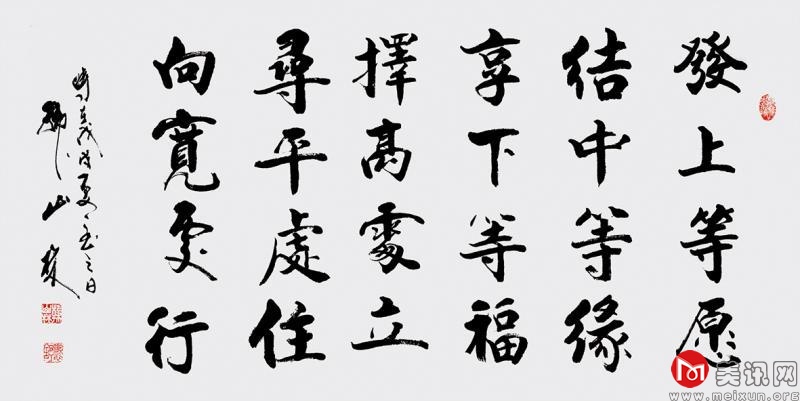 發上等愿
結中等緣
享下等福
擇高處立
尋平處住
向寬處行
美讯网
www.meixun.org